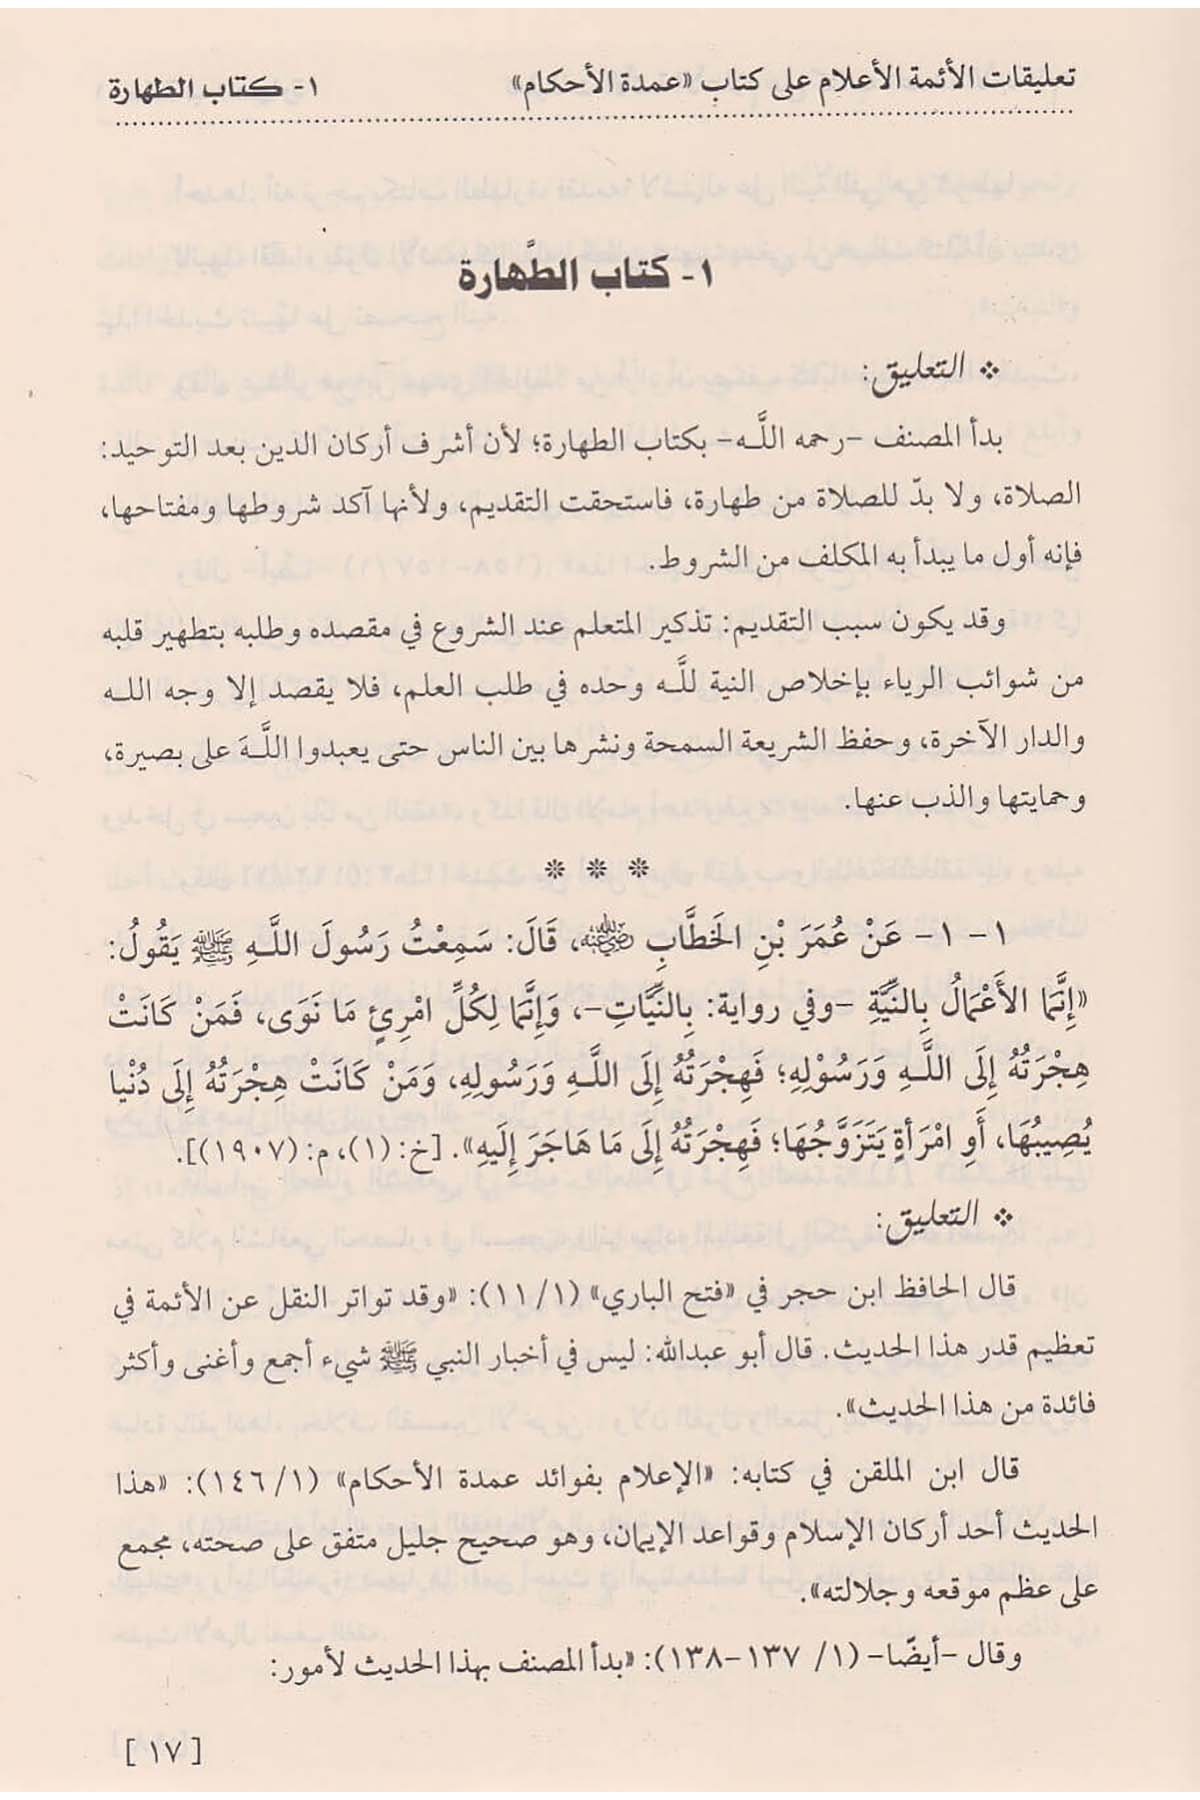 تعليقات الأئمة الأعلام على كتاب «عمدة الأحكام»
١- كتاب الطهارة
١- كتاب الطَّهارة
* التعليق:
بدأ المصنف -رحمه اللَّه- بكتاب الطهارة؛ لأن أشرف أركان الدين بعد التوحيد:
الصلاة، ولا بدّ للصلاة من طهارة، فاستحقت التقديم، ولأنها آكد شروطها ومفتاحها،
فإنه أول ما يبدأ به المكلف من الشروط.
وقد يكون سبب التقديم: تذكير المتعلم عند الشروع في مقصده وطلبه بتطهير قلبه
من شوائب الرياء بإخلاص النية للَّه وحده في طلب العلم، فلا يقصد إلا وجه الله
والدار الآخرة، وحفظ الشريعة السمحة ونشرها بين الناس حتى يعبدوا اللَّهَ على بصيرة،
وحمايتها والذب عنها.
* * *
١- ١- عَنْ عُمَرَ بْنِ الخَطَّابِ رضي الله عنه، قَالَ: سَمِعْتُ رَسُولَ اللَّهِ ﷺ يَقُولُ:
«إِنَّمَا الأَعْمَالُ بِالنِّيَّةِ -وفي رواية: بِالنِّيَّاتِ-، وَإِنَّمَا لِكُلِّ امْرِئٍ مَا نَوَى، فَمَنْ كَانَتْ
هِجْرَتُهُ إِلَى اللَّهِ وَرَسُوْلِهِ؛ فَهِجْرَتُهُ إِلَى اللَّهِ وَرَسُولِهِ، وَمَنْ كَانَتْ هِجْرَتُهُ إِلَى دُنْيا
يُصِيبُهَا، أَوِ امْرَأةٍ يَتَزَوَّجُهَا؛ فَهِجْرَتُهُ إِلَى مَا هَاجَرَ إِلَيهِ». [خ: (١)، م: (١٩٠٧)].
* التعليق:
قال الحافظ ابن حجر في «فتح الباري» (١/ ١١): «وقد تواتر النقل عن الأئمة في
تعظيم قدر هذا الحديث. قال أبو عبدالله: ليس في أخبار النبي ﷺ شيء أجمع وأغنى وأكثر
فائدة من هذا الحديث».
قال ابن الملقن في كتابه: «الإعلام بفوائد عمدة الأحكام» (١/ ١٤٦): «هذا
الحديث أحد أركان الإسلام وقواعد الإيمان، وهو صحيح جليل متفق على صحته، مجمع
على عظم موقعه وجلالته».
وقال -أيضًا- (١/ ١٣٧-١٣٨): «بدأ المصنف بهذا الحديث لأمور:
[١٧]